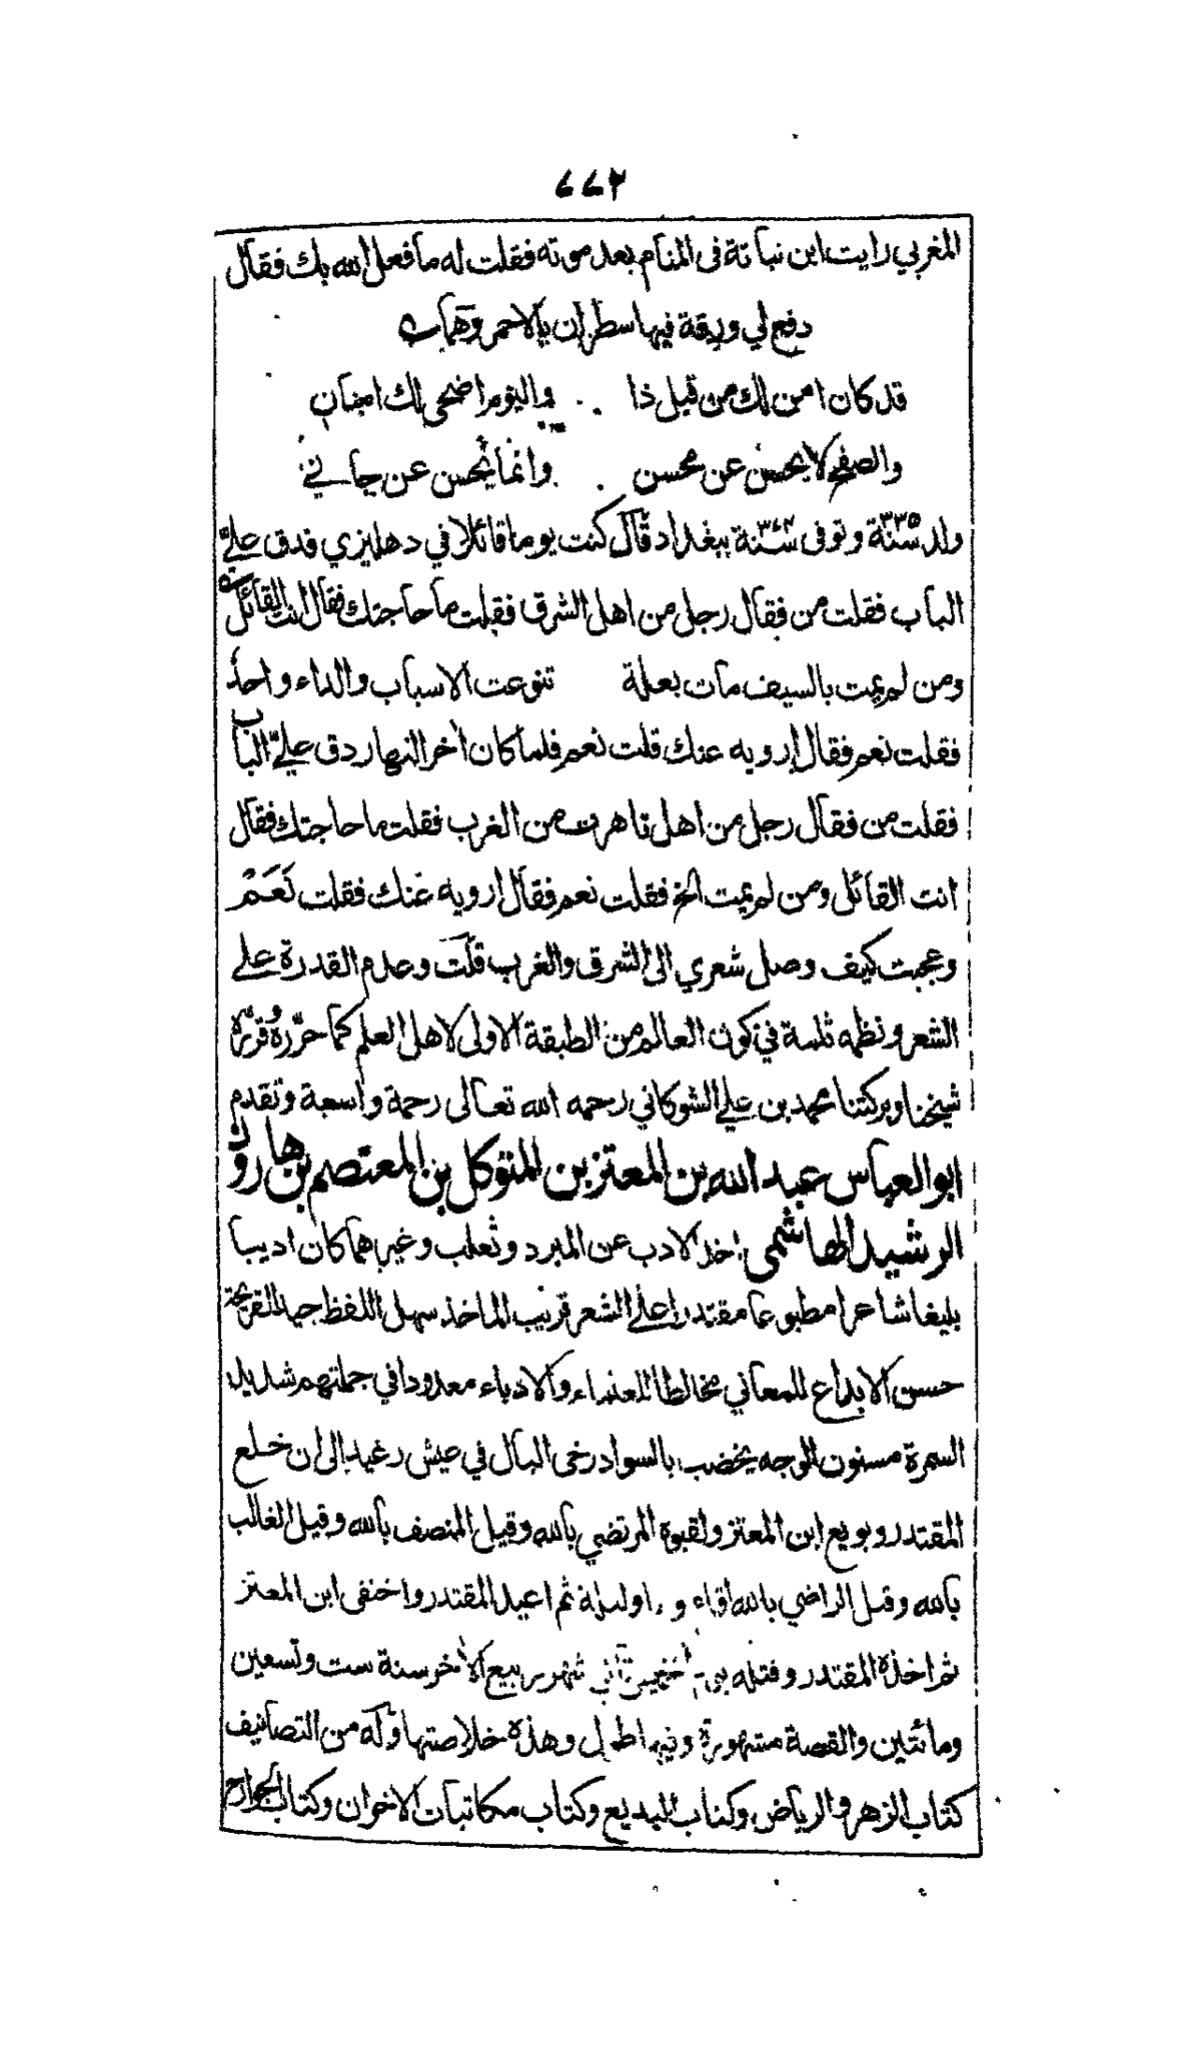 ٦٦٢
المغربي رايت ابن نباتة فى المنام بعد موته فقلت له ما فعل الله بك فقال
دفع لي ورقة فيها سطران بالاحمر وهما
قد كان امن لك من قبل ذا واليوم اضحى لك امنان
والصفح لا يحسن عن محسن وانما يحسن عن جاني
ولد سنة ٣٣٥ وتوفى سنة ببغداد قال كنت يوما قائلا في دهليزي فدق عليّ
الباب فقلت من فقال رجل من اهل الشرق فقلت ما حاجتك فقال انت القائل
ومن لم يمت بالسيف مات بعلة تنوعت الاسباب والداء واحد
فقلت نعم فقال ارويه عنك قلت نعم فلما كان اخر النهار دق عليّ الباب
فقلت من فقال رجل من اهل تاهرت من الغرب فقلت ما حاجتك فقال
انت القائل ومن لم يمت الخ فقلت نعم فقال ارويه عنك فقلت نَعَمْ
وعجبت كيف وصل شعري الى الشرق والغرب قلت وعدم القدرة على
الشعر ونظمه ثلمة في كون العالم من الطبقة الاولى لاهل العلم كما حرّره وقرّره
شيخنا وبركتنا محمد بن علي الشوكاني رحمه الله تعالى رحمة واسعة وتقدم
ابو العباس عبد الله بن المعتز بن المتوكل بن المعتصم بن هارون
الرشيد الهاشمى اخذ الادب عن المبرد وثعلب وغيرهما كان اديبا
بليغا شاعرا مطبوعا مقتدرا على الشعر قريب الماخذ سهل اللفظ جيد القريحة
حسن الابداع للمعاني مخالطا للعلماء والادباء معدودا في جملتهم شديد
السمرة مسنون الوجه يخضب بالسواد رخى البال في عيش رغيد الى ان خلع
المقتدر وبويع ابن المعتز ولقبوه المرتضي بالله وقيل المنصف بالله وقيل الغالب
بالله وقيل الراضي بالله اقام وليلة ثم اعيد المقتدر واختفى ابن المعتز
ثم اخذه المقتدر وقتله يوم الخميس ثاني شهر ربيع الاخر سنة ست وتسعين
ومائتين والقصة مشهورة وفيها طول وهذه خلاصتها وله من التصانيف
كتاب الزهر والرياض وكتاب البديع وكتاب مكاتبات الاخوان وكتاب الجوارح